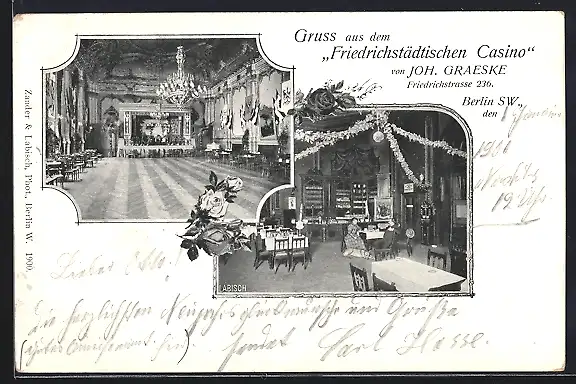 Gruss aus dem
„Friedrichstädtischen Casino"
von JOH. GRAESKE
Friedrichstrasse 236.
Berlin SW.,
den 1
1901
Nachts
12 Uhr
Zander & Labisch, Phot., Berlin W. 1900.
LABISCH
Lieber
Die herzlichsten Neujahrs und Grüße
sendet Carl